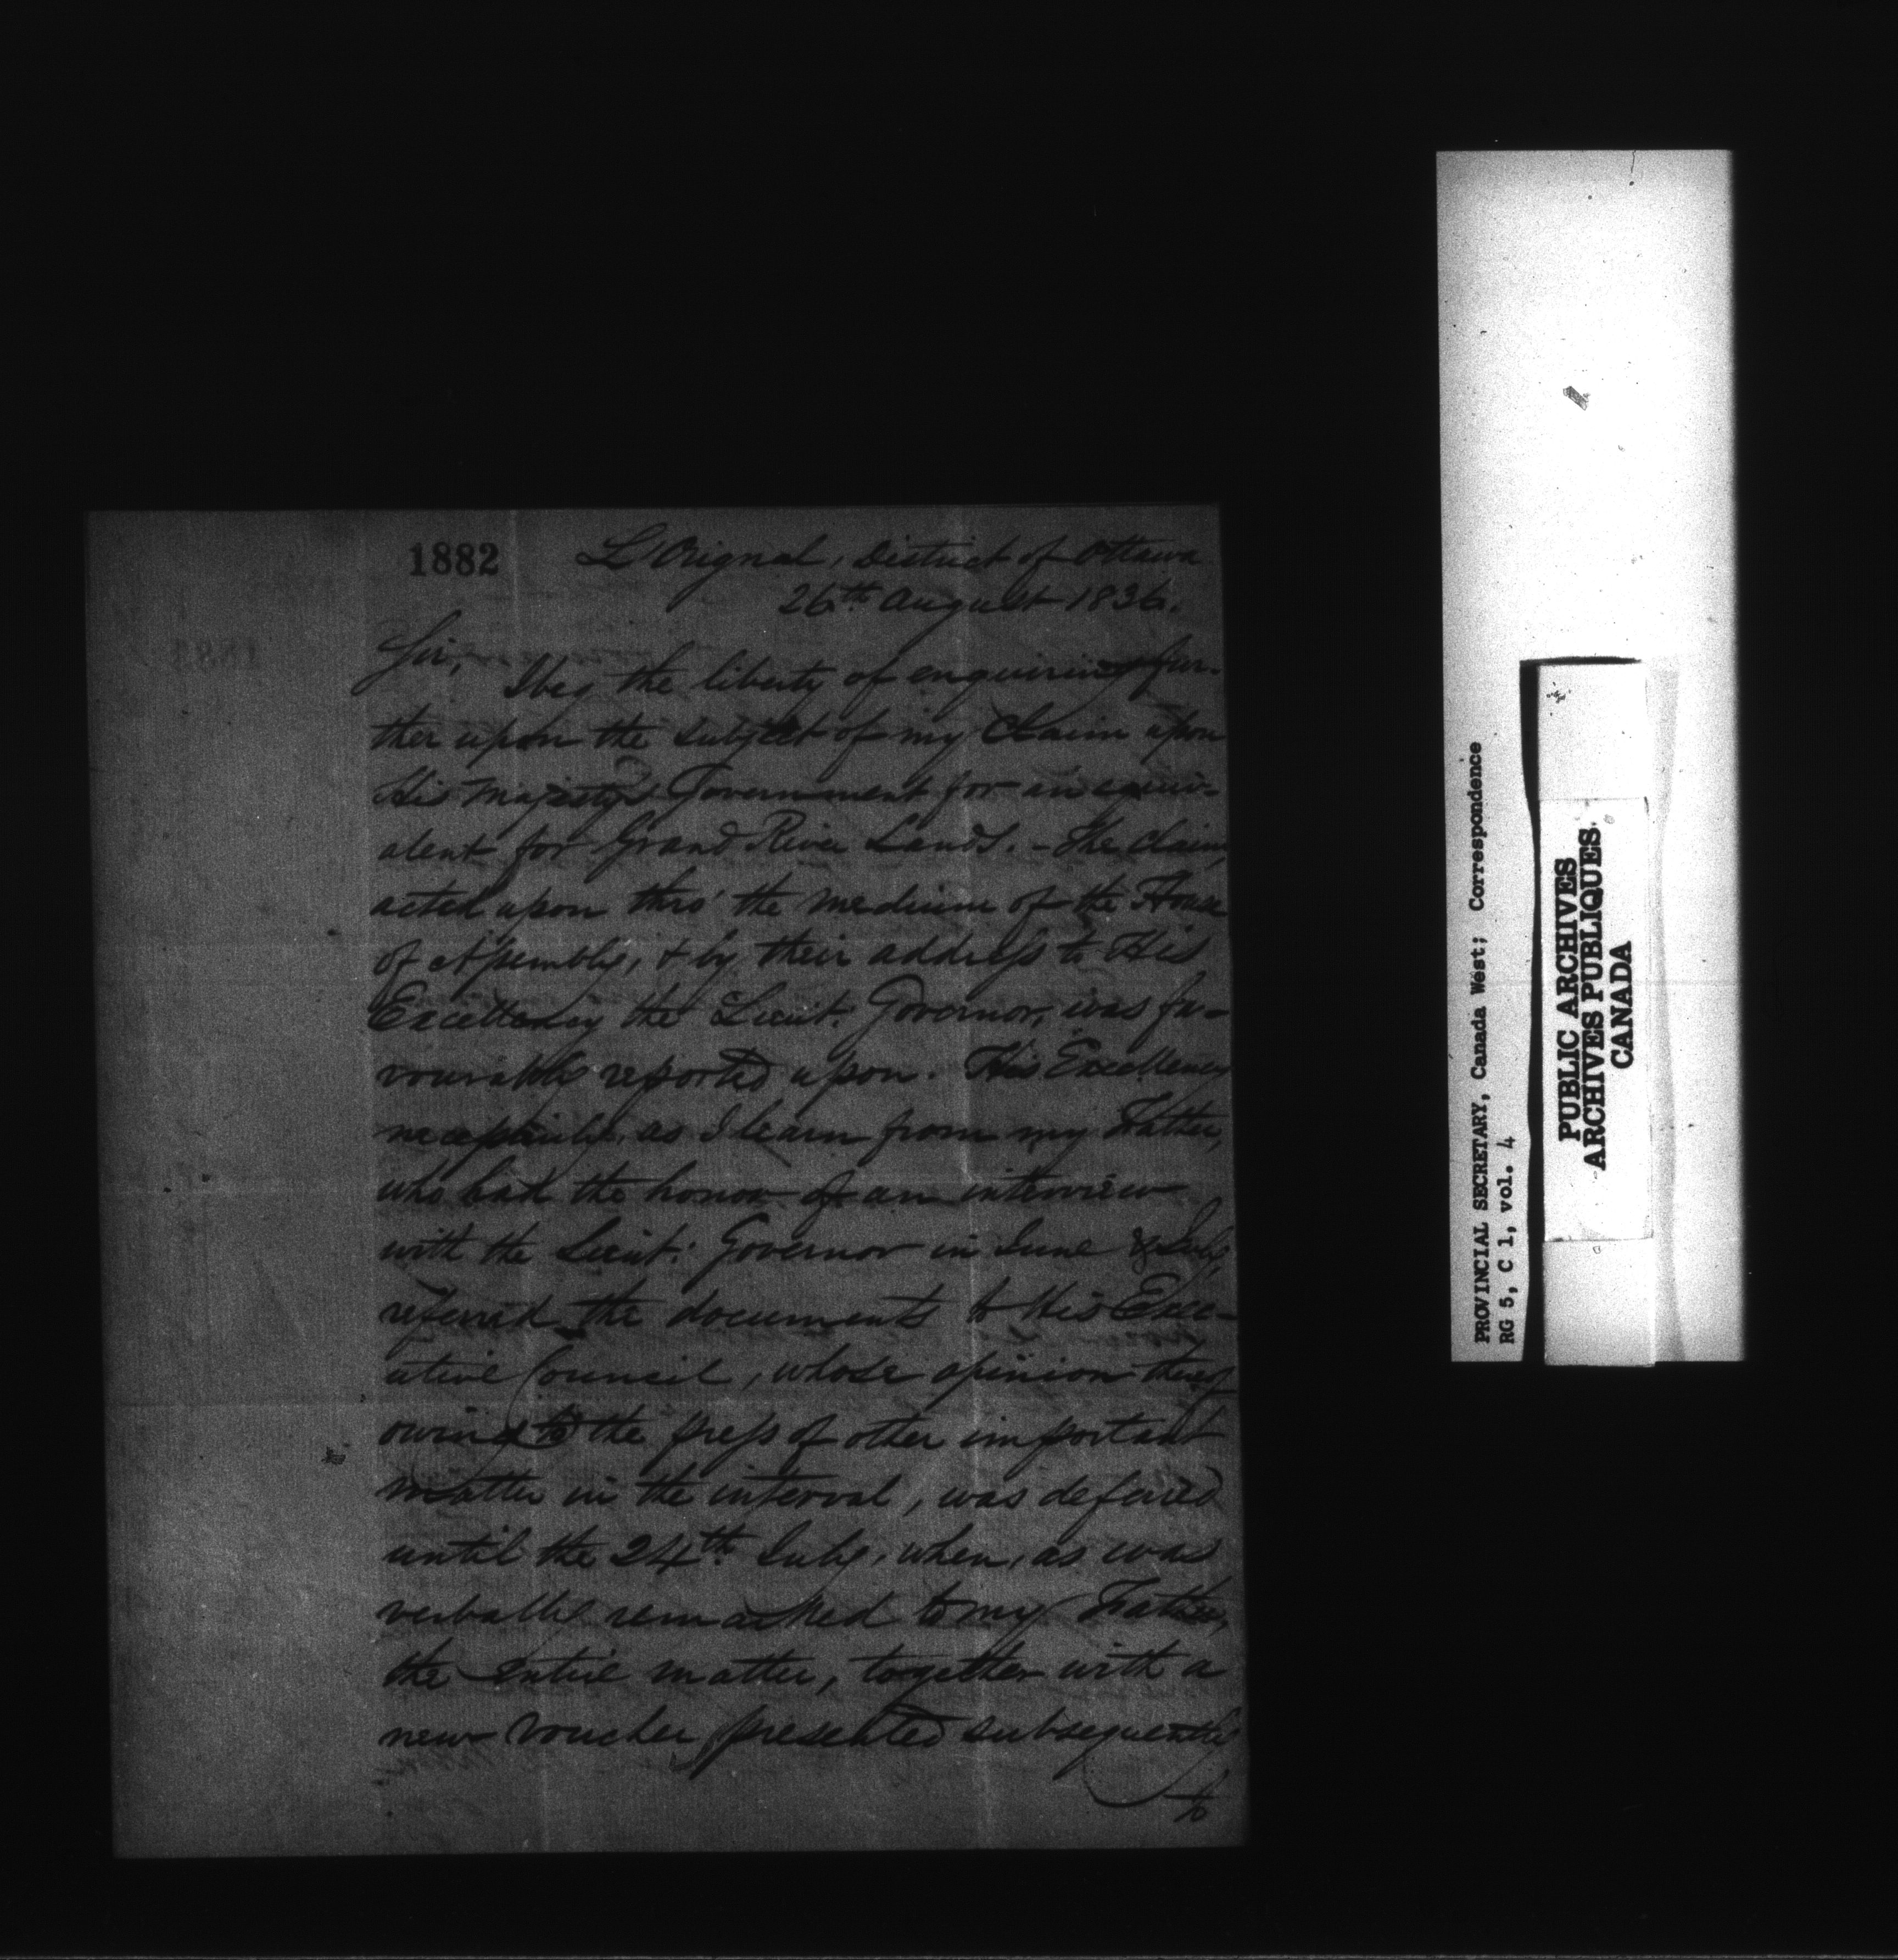 1882
L'Orignal, District of Ottawa
26th August 1836.
Sir,
I beg the liberty of enquiring fur-
ther upon the subject of my Claim upon
His Majesty's Government for an equiv-
alent for Grand River Lands. - The claim,
acted upon thro' the medium of the House
of Assembly, & by their address to His
Excellency the Lieut: Governor, was fa-
vourably reported upon. His Excellency
as I learn from my Father,
who had the honor of an interview
with the Lieut: Governor in June & July,
referred the documents to His Exec-
utive Council, whose opinion thereof
owing to the press of other important
matter in the interval, was deferred
until the 24th July, when, as was
verbally remarked to my Father,
the entire matter, together with a
new voucher presented subsequently
to
PROVINCIAL SECRETARY, Canada West; Correspondence
RG 5, C 1, vol. 4
PUBLIC ARCHIVES
ARCHIVES PUBLIQUES
CANADA